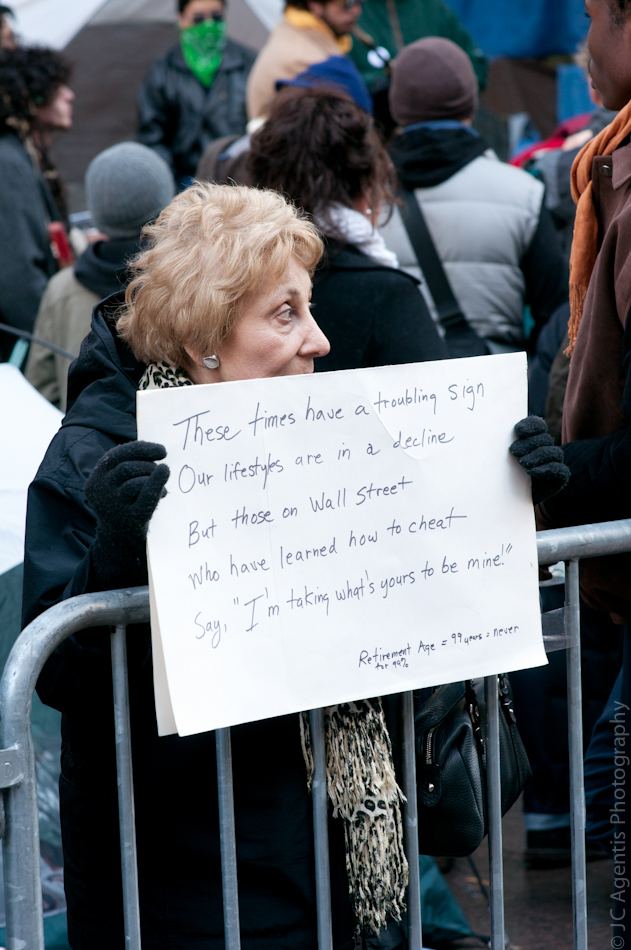 These times have a troubling sign
Our lifestyles are in a decline
But those on Wall Street
Who have learned how to cheat
Say, "I'm taking what's yours to be mine!"
Retirement Age = 99 years = never
for 99%
© JC Agentis Photography